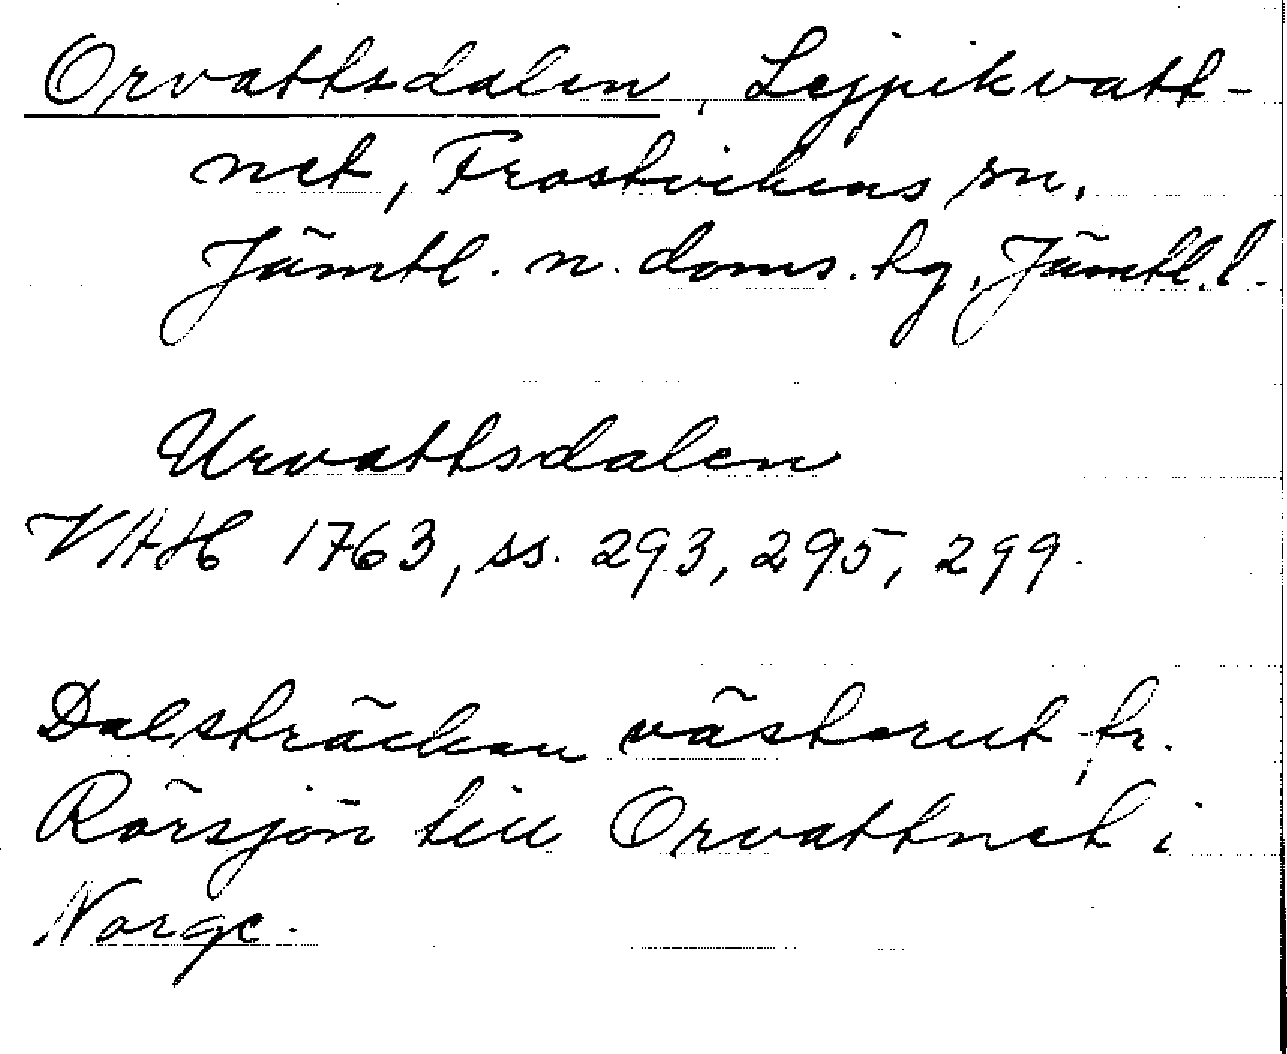 Orvattsdalen, Lejpikvatt-
net, Frostvikens sn.
Jämtl. n. doms. hg, Jämtl. l.
Urvattsdalen
VHH 1763, ss. 293, 295, 299.
Dalsträckan västerut fr.
Rörsjön till Orvattnet i
Norge.